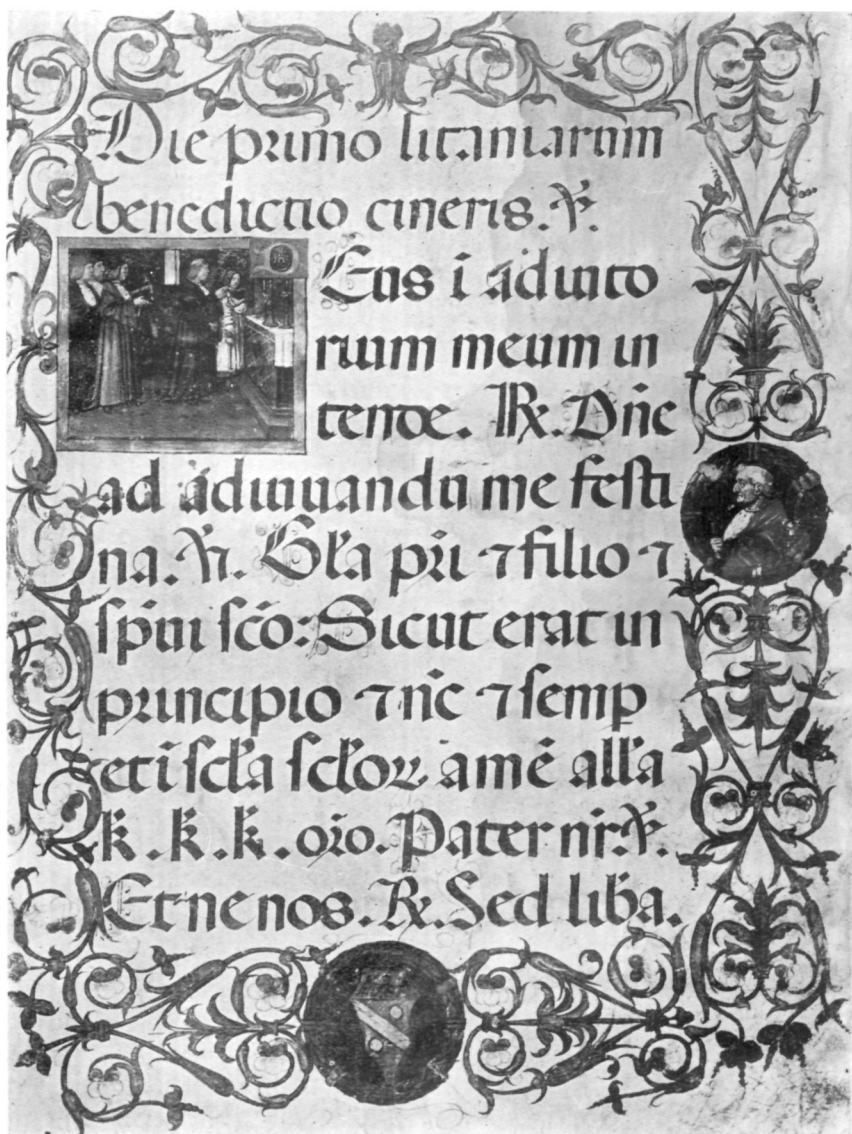 Die primo litaniarum
benedictio cineris. ℣.
Eus ī adiuto
rium meum in
tende. ℟. Dn̄e
ad adiuuandū me festi
na. ℣. Gl̄a pr̄i ⁊ filio ⁊
sp̄ui sc̄o: Sicut erat in
principio ⁊ nc̄ ⁊ semp̄
et ī scl̄a scl̄oꝝ amē all̄a
k̄. k̄. k̄. or̄o. Pater nr̄. ℣.
Et ne nos. ℟. Sed lib̄a.